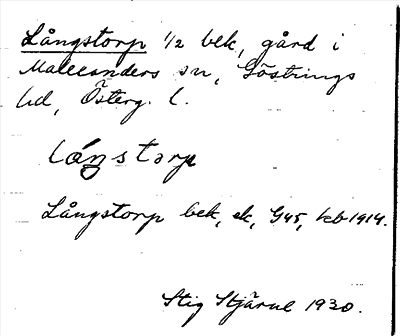 Långstorp 1/2 bek, gård i
Malexanders sn, Göstrings
hd, Österg. l.
lóŋstorp
Långstorp bek, ek, G45, kb 1914.
Stig Stjärne 1930.